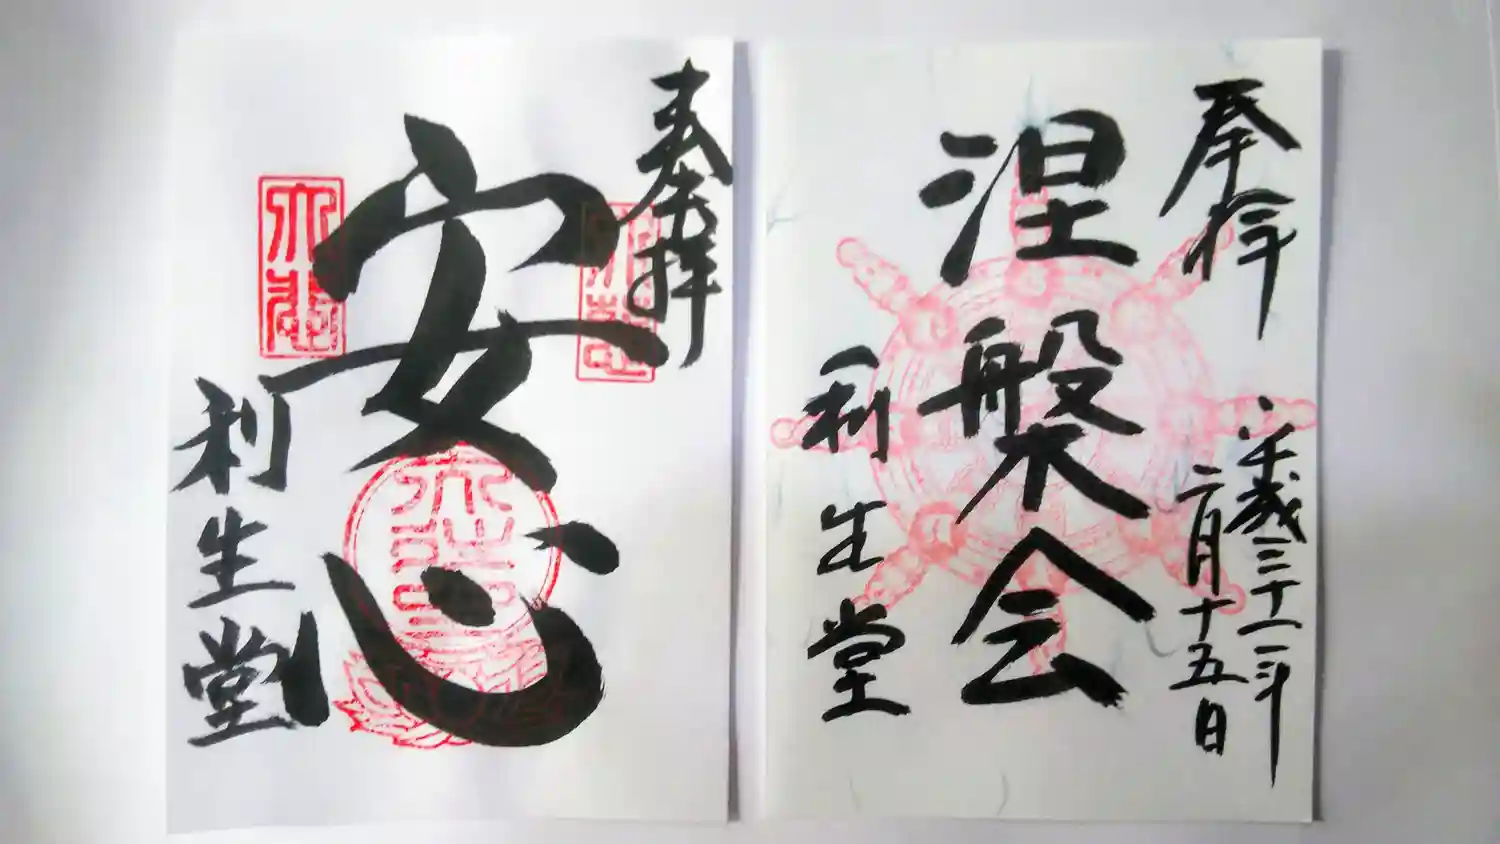 奉拝
安心
利生堂
奉拝
平成三十一年
二月十五日
涅槃会
利生堂